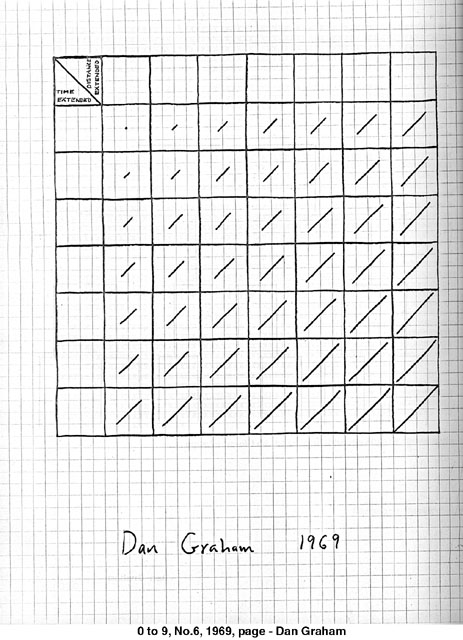 DISTANCE
EXTENDED
TIME
EXTENDED
Dan Graham 1969
0 to 9, No.6, 1969, page - Dan Graham